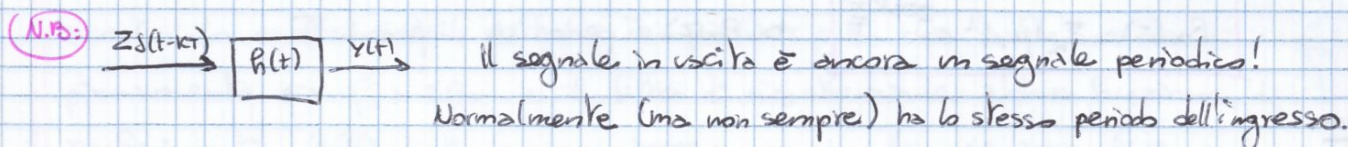 N.B:
Σδ(t-kT) h(t) y(t) Il segnale in uscita è ancora un segnale periodico!
Normalmente (ma non sempre) ha lo stesso periodo dell'ingresso.